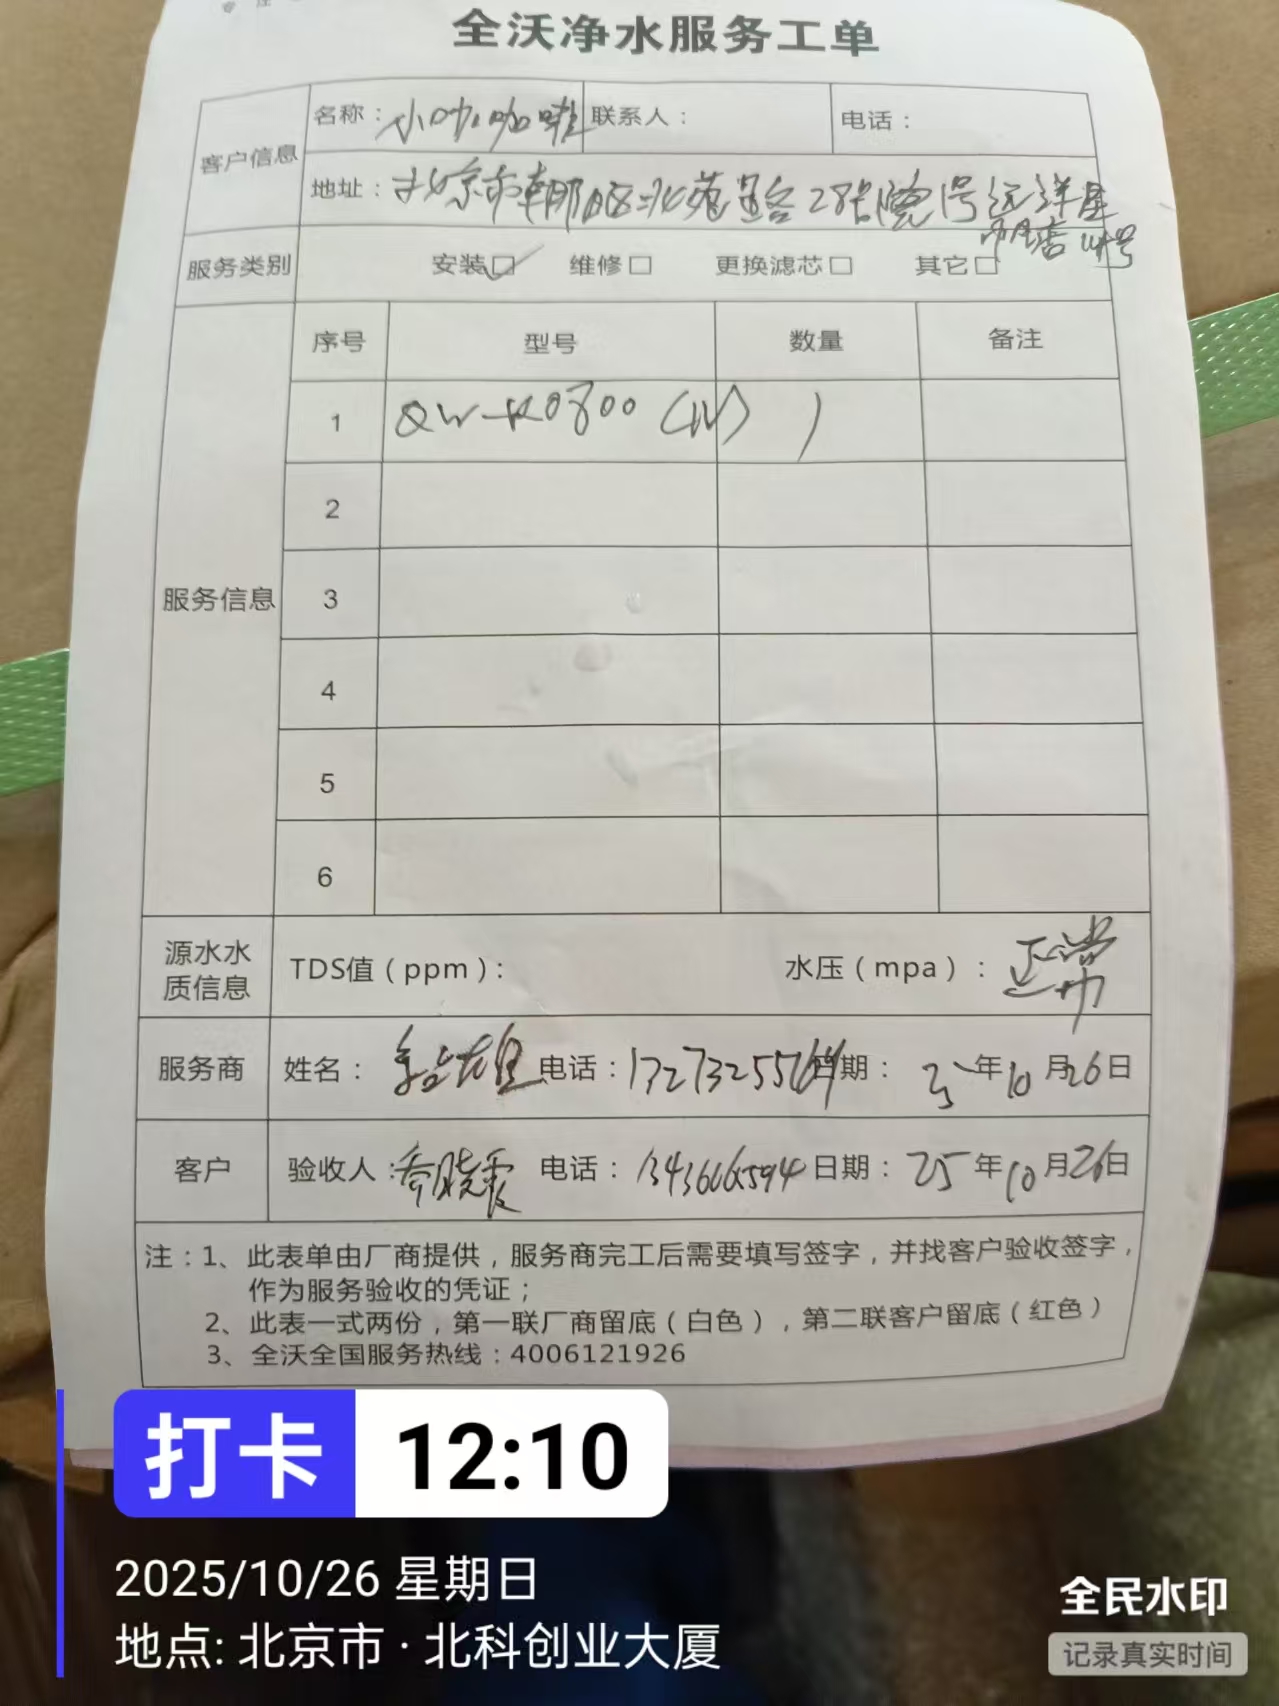 专 注
全沃净水服务工单
客户信息 名称：小咖咖啡 联系人： 电话：
地址：北京市朝阳区北苑路28号院1号远洋
服务类别 安装☑ 维修□ 更换滤芯□ 其它□
服务信息 序号 型号 数量 备注
1 QW-R0800（IV） 1
2
3
4
5
6
源水水质信息 TDS值（ppm）： 水压（mpa）：正常
服务商 姓名： 电话： 日期： 年10月26日
客户 验收人：乔晓霞 电话： 日期：25年10月26日
注：1、此表单由厂商提供，服务商完工后需要填写签字，并找客户验收签字，
作为服务验收的凭证；
2、此表一式两份，第一联厂商留底（白色），第二联客户留底（红色）
3、全沃全国服务热线：4006121926
打卡 12:10
2025/10/26 星期日
地点: 北京市·北科创业大厦
全民水印
记录真实时间